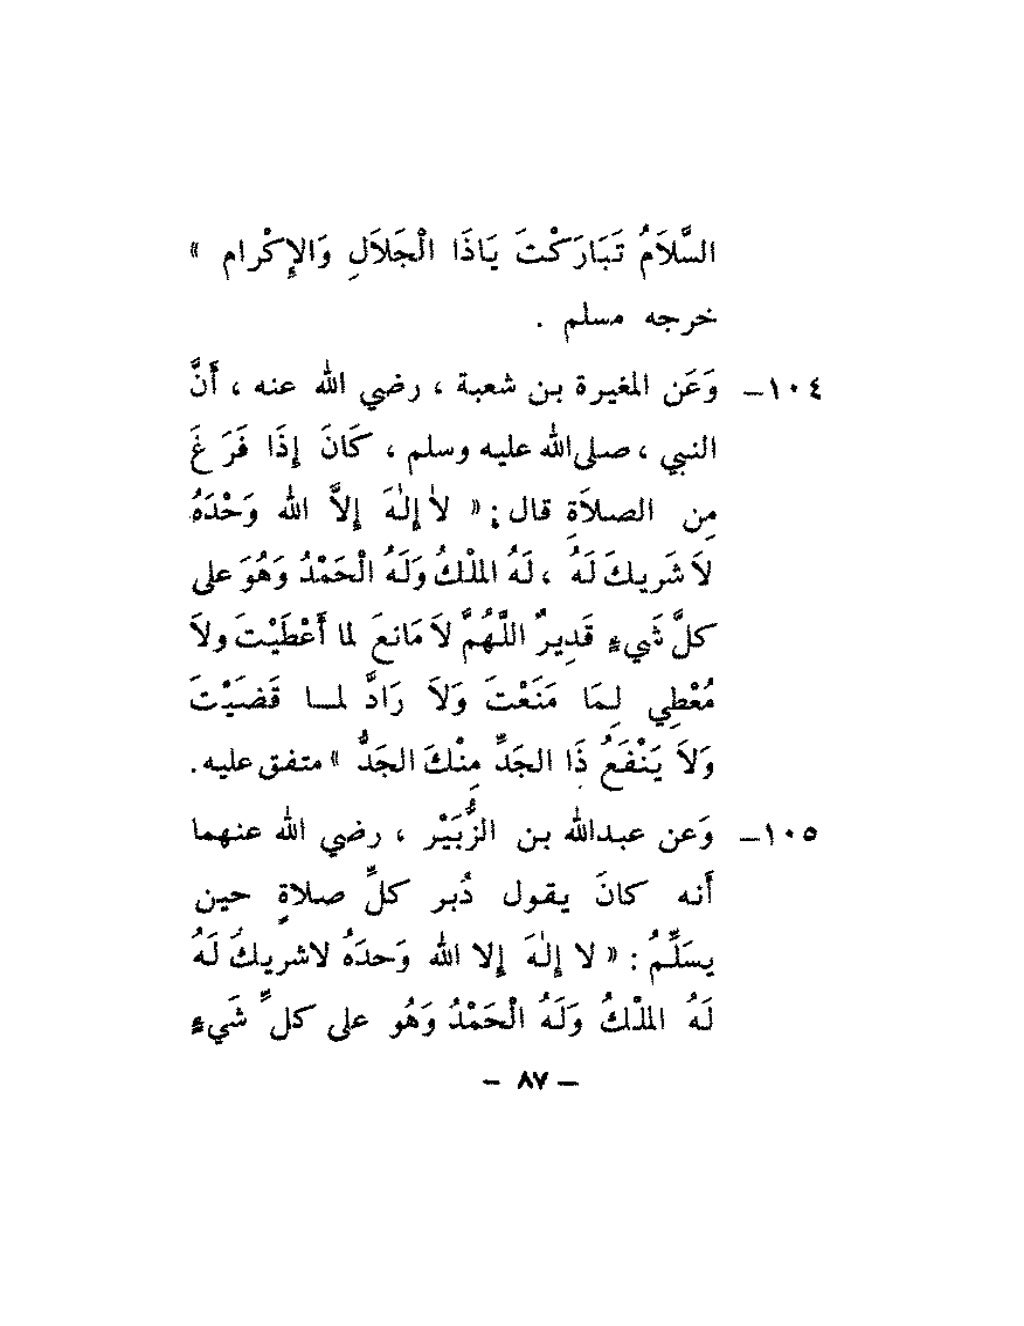 السَّلاَمُ تَبَارَكْتَ يَاذَا الْجَلاَلِ وَالإِكْرام »
خرجه مسلم .
١٠٤– وَعَن المغيرة بن شعبة ، رضي الله عنه ، أَنَّ
النبي ، صلى الله عليه وسلم ، كَانَ إِذَا فَرَغَ
مِن الصلاَةِ قال : « لاَ إِلٰهَ إِلاَّ الله وَحْدَهُ
لاَ شَريكَ لَهُ ، لَهُ الملْكُ وَلَهُ الْحَمْدُ وَهُوَ على
كلَّ شَيءٍ قَدِيرٌ اللَّهُمَّ لاَ مَانعَ لما أَعْطَيْتَ ولاَ
مُعْطِي لِمَا مَنَعْتَ وَلاَ رَادَّ لمـا قَضَيْتَ
وَلاَ يَنْفَعُ ذَا الجَدِّ مِنْكَ الجَدُّ » متفق عليه .
١٠٥– وَعن عبدالله بن الزُّبَيْر ، رضي الله عنهما
أَنه كانَ يقول دُبر كلِّ صلاةٍ حين
يسَلِّمُ : « لا إِلٰهَ إِلا الله وَحدَهُ لاشريكَ لَهُ
لَهُ الملْكُ وَلَهُ الْحَمْدُ وَهُو على كلِّ شَيءٍ
– ٨٧ –